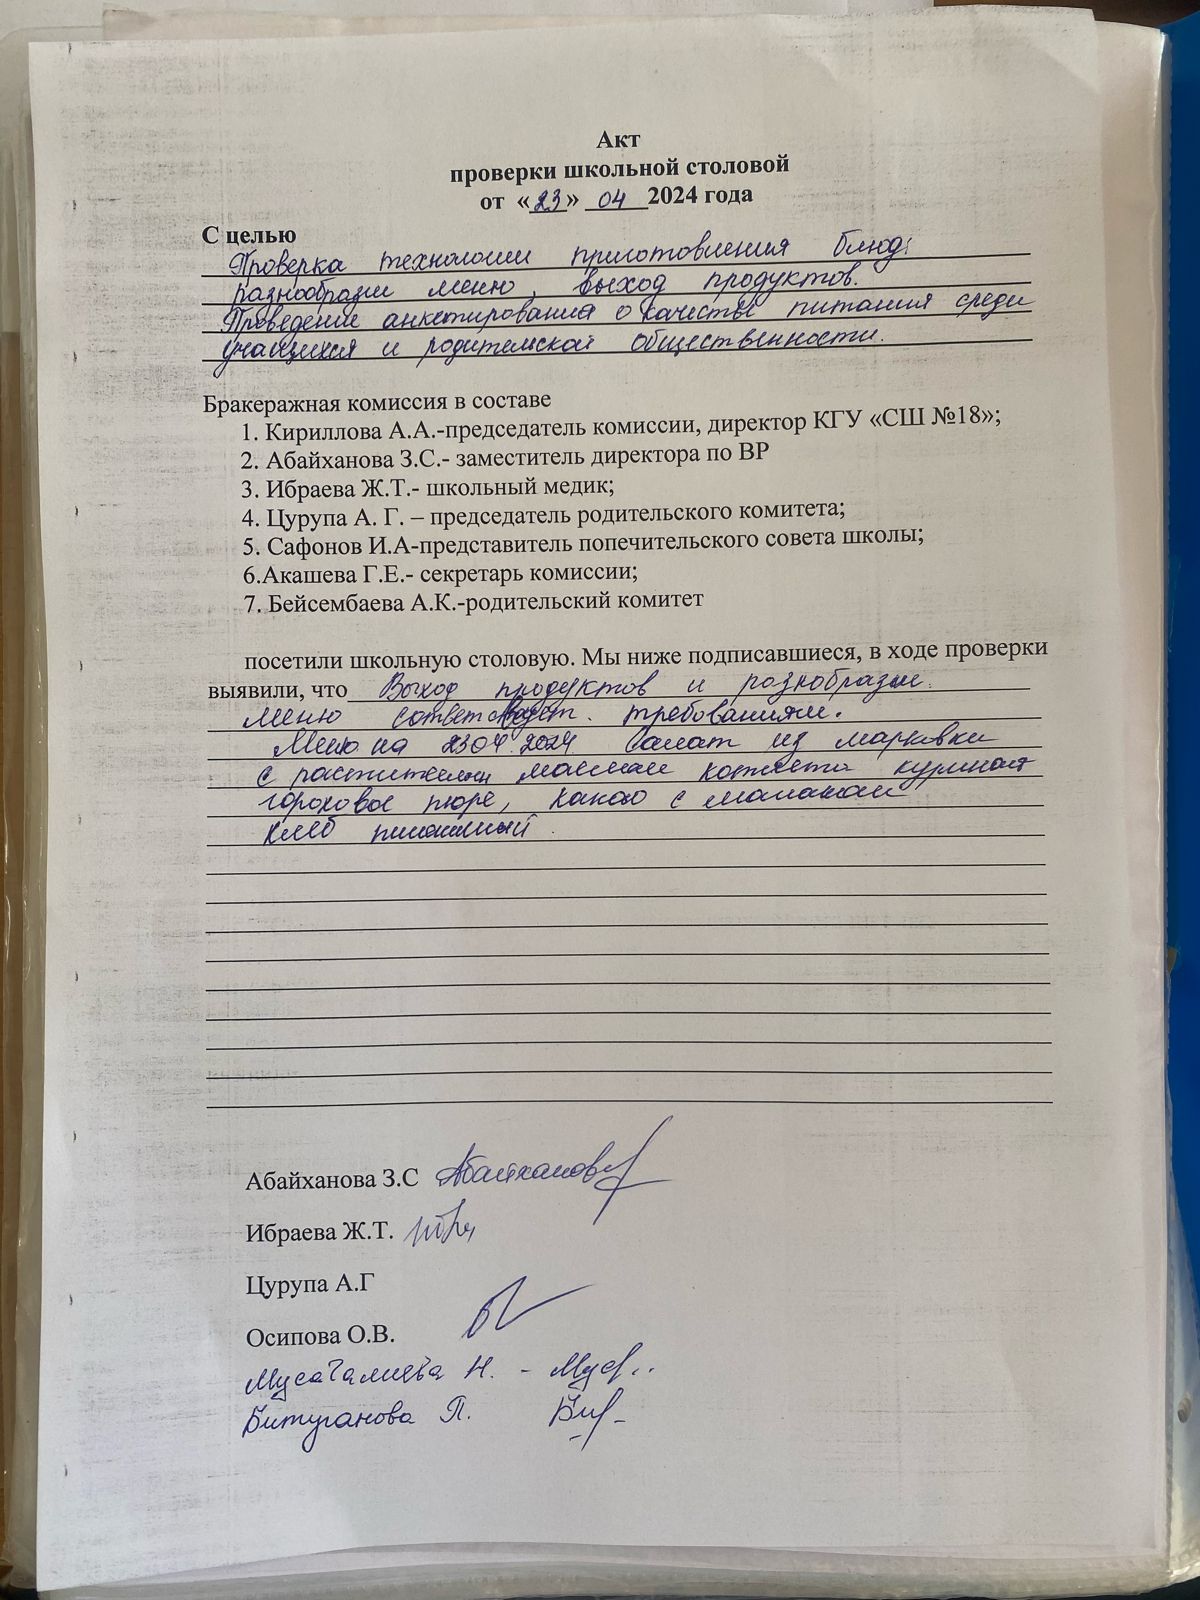 Акт
проверки школьной столовой
от «23» 04 2024 года
С целью
Проверка технологии приготовления блюд;
разнообразии меню, выход продуктов.
Проведение анкетирования о качестве питания среди
учащихся и родительской общественности.
Бракеражная комиссия в составе
1. Кириллова А.А.-председатель комиссии, директор КГУ «СШ №18»;
2. Абайханова З.С.- заместитель директора по ВР
3. Ибраева Ж.Т.- школьный медик;
4. Цурупа А. Г. – председатель родительского комитета;
5. Сафонов И.А-представитель попечительского совета школы;
6.Акашева Г.Е.- секретарь комиссии;
7. Бейсембаева А.К.-родительский комитет
посетили школьную столовую. Мы ниже подписавшиеся, в ходе проверки
выявили, что Выход продуктов и разнобразии.
меню требованиям.
Меню на 23.04.2024 Салат из марковки
с маслом котлета куриная
гороховое пюре, какао с молоком
хлеб пшеничный.
Абайханова З.С Абайханова
Ибраева Ж.Т.
Цурупа А.Г
Осипова О.В.
Мусагалиева Н. - Мус..
Битуганова П. Бит